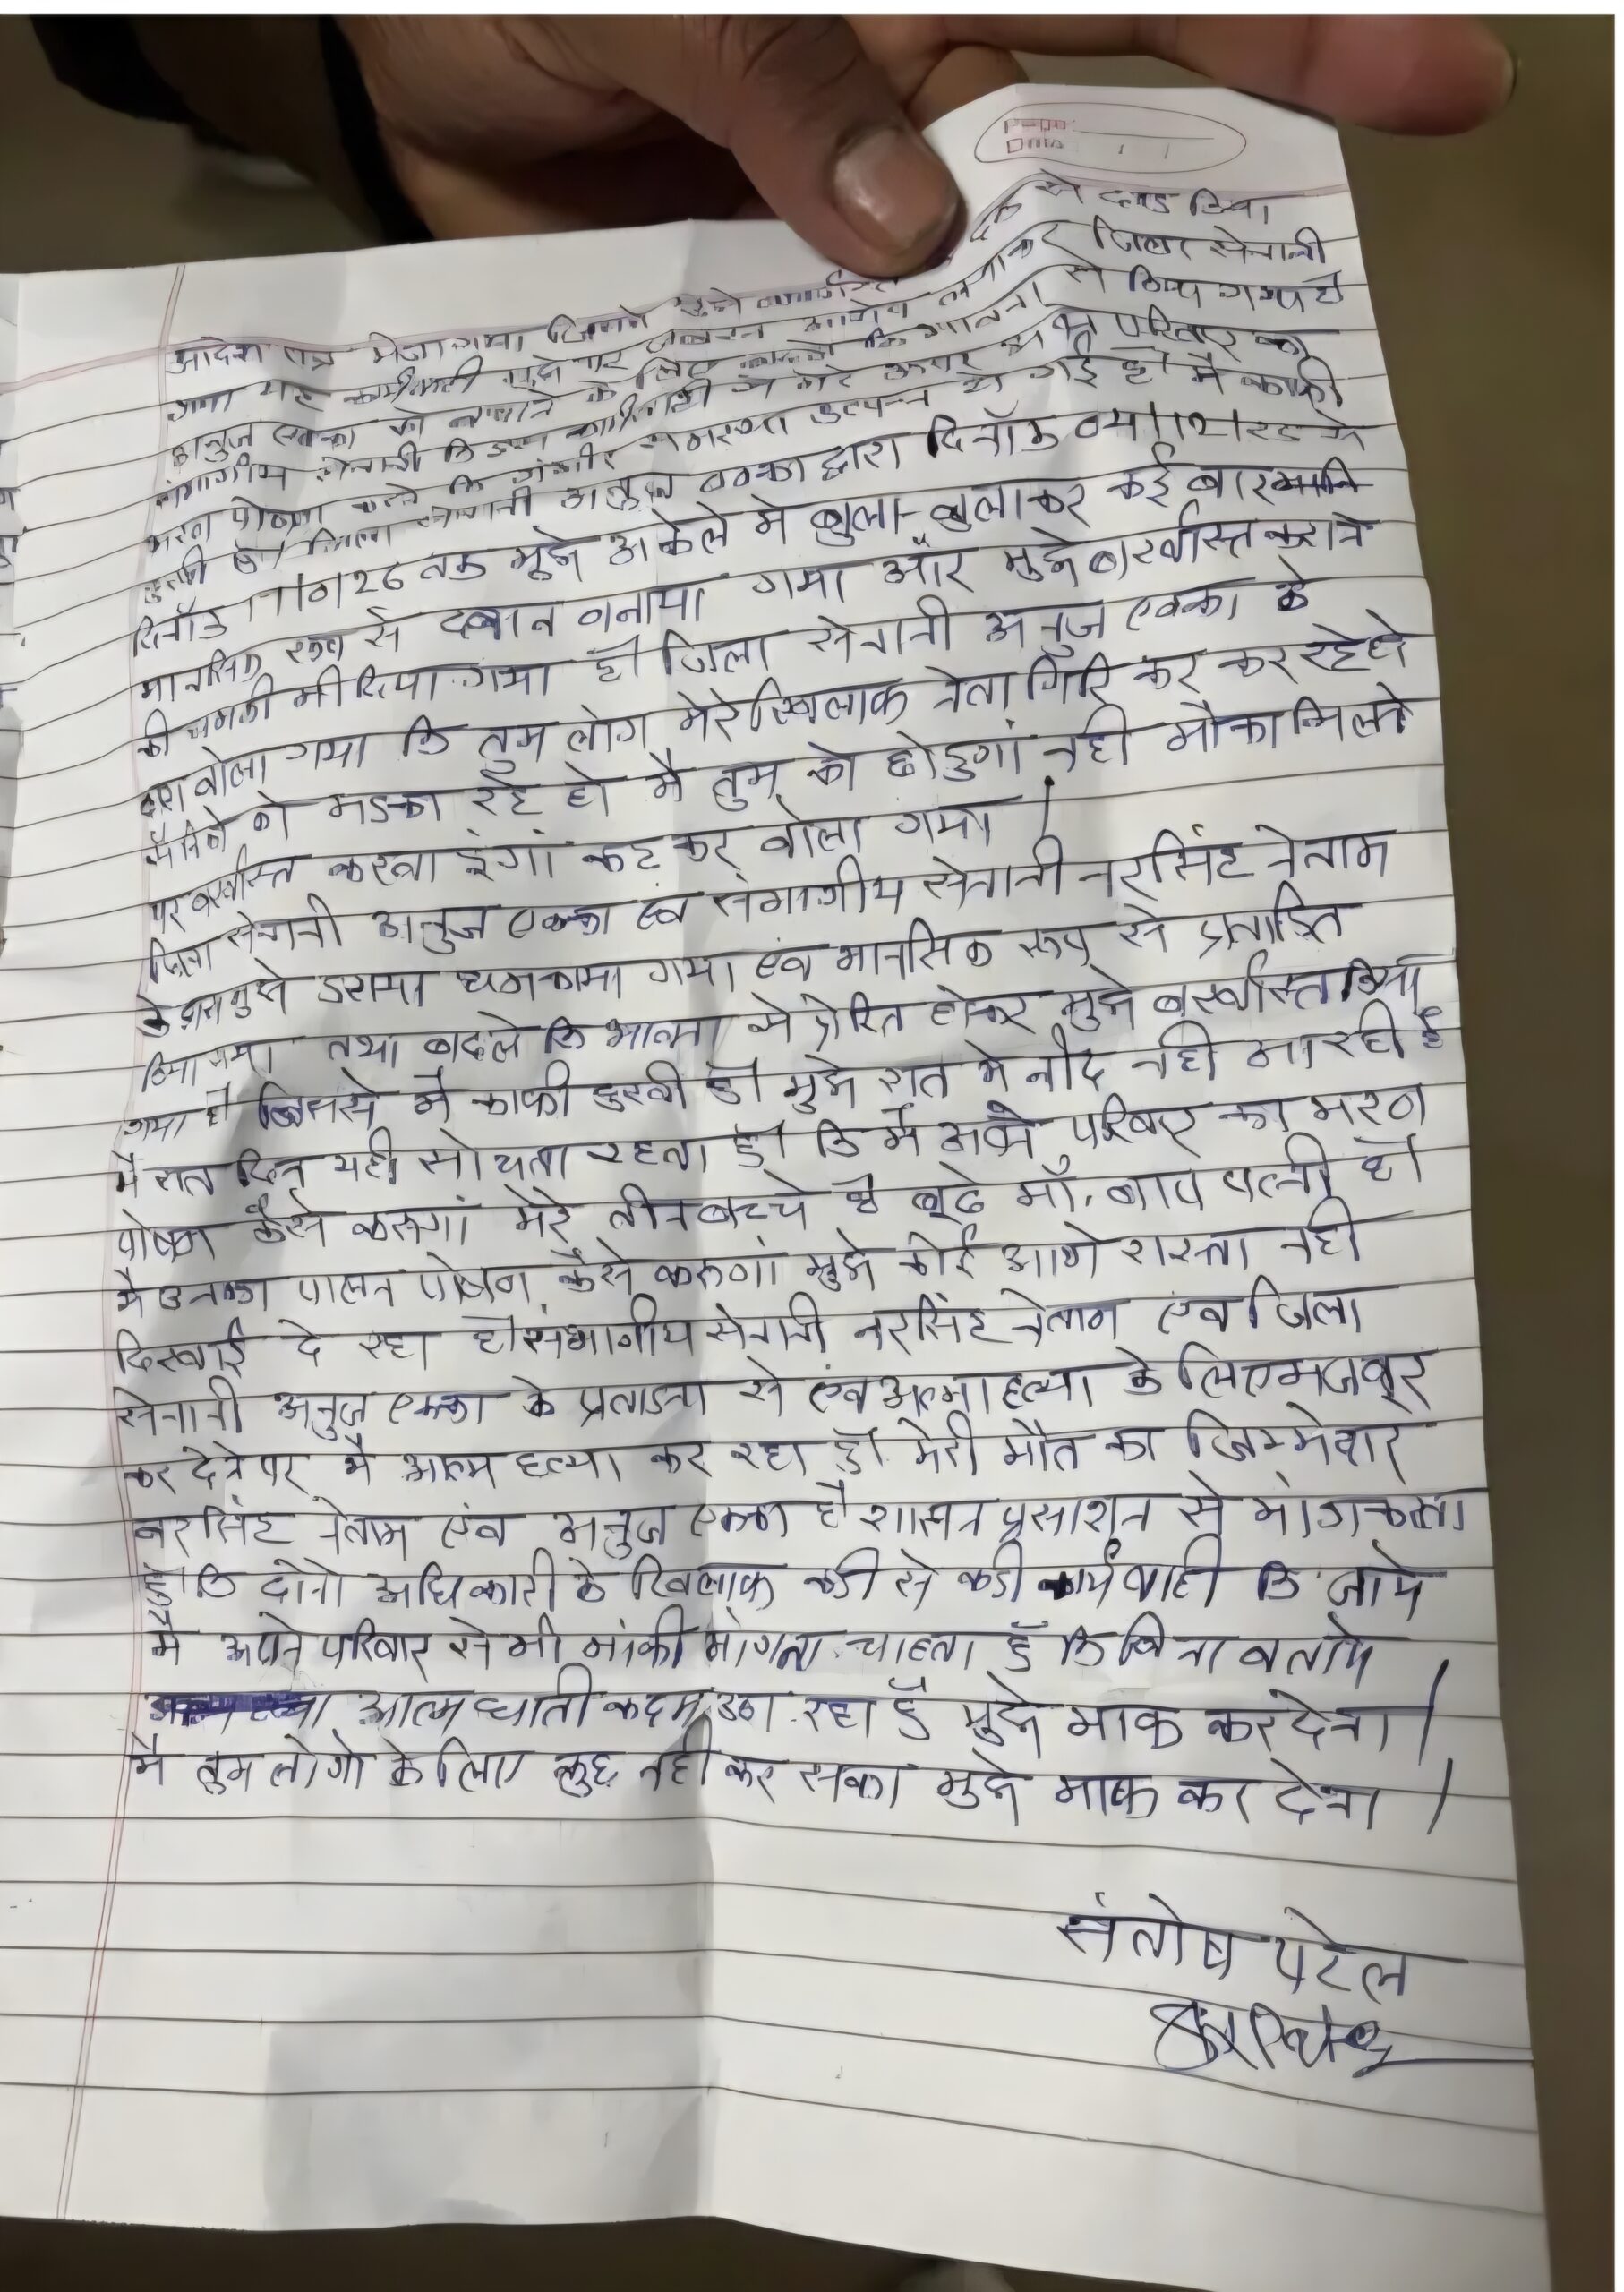 Page:
Date
से दण्ड दिया
आदेश पत्र भेजा गया जिसमे मुझे
गया यह कार्यवाही लगाकर जिला सेनानी
अनुज एक्का को बचाने के लिए कि भावना से किया गया है
संभागीय सेनानी कि इस कार्यवाही से मेरे ऊपर परिवार का
भरण पोषण करने कि गंभीर समस्या उत्पन्न हो गई है। मै काफी
दुखी हूं। जिला सेनानी अनुज एक्का द्वारा दिनाँक से
दिनाँक तक मुझे अकेले मे बुला-बुलाकर कई बार
मानसिक रूप से दबाव बनाया गया और मुझे बर्खास्त कराने
की धमकी भी दिया गया है। जिला सेनानी अनुज एक्का के
द्वारा बोला गया कि तुम लोग मेरे खिलाफ नेता गिरि कर कर रहे हो
सैनिको को भडका रहे हो मै तुम को छोडुगां नही मौका मिलने
पर बर्खास्त करवा दुंगां कह कर बोला गया।
जिला सेनानी अनुज एक्का एवं संभागीय सेनानी नरसिंह नेताम
के द्वारा मुझे डराया धमकाया गया एवं मानसिक रूप से प्रताडित
किया गया तथा बदले कि भावना से प्रेरित होकर मुझे बर्खास्त किया
गया है जिससे मै काफी दुखी हुं। मुझे रात मे नींद नही आ रही है
मै रात दिन यही सोचता रहता हुं। कि मै अपने परिवार का भरण
पोषण कैसे करूगां मेरे तीन बच्चे है बुढे माँ, बाप पत्नी है।
मै उनका पालन पोषण कैसे करूगां मुझे कोई आगे रास्ता नही
दिखाई दे रहा है। संभागीय सेनानी नरसिंह नेताम एवं जिला
सेनानी अनुज एक्का के प्रताडना से एवं आत्माहत्या के लिए मजबूर
कर देने पर मै आत्म हत्या कर रहा हुं। मेरी मौत का जिम्मेवार
नरसिंह नेताम एवं अनुज एक्का है शासन प्रसाशन से मांग करता
हुं कि दोनो अधिकारी के खिलाफ कडी से कडी कार्यवाही कि जाये
मै अपने परिवार से भी मांफी मांगना चाहता हुँ कि बिना बताये
आत्म घाती कदम उठा रहा हुँ मुझे माफ कर देना।
मै तुम लोगो के लिए कुछ नही कर सका मुझे माफ कर देना।
संतोष पटेल